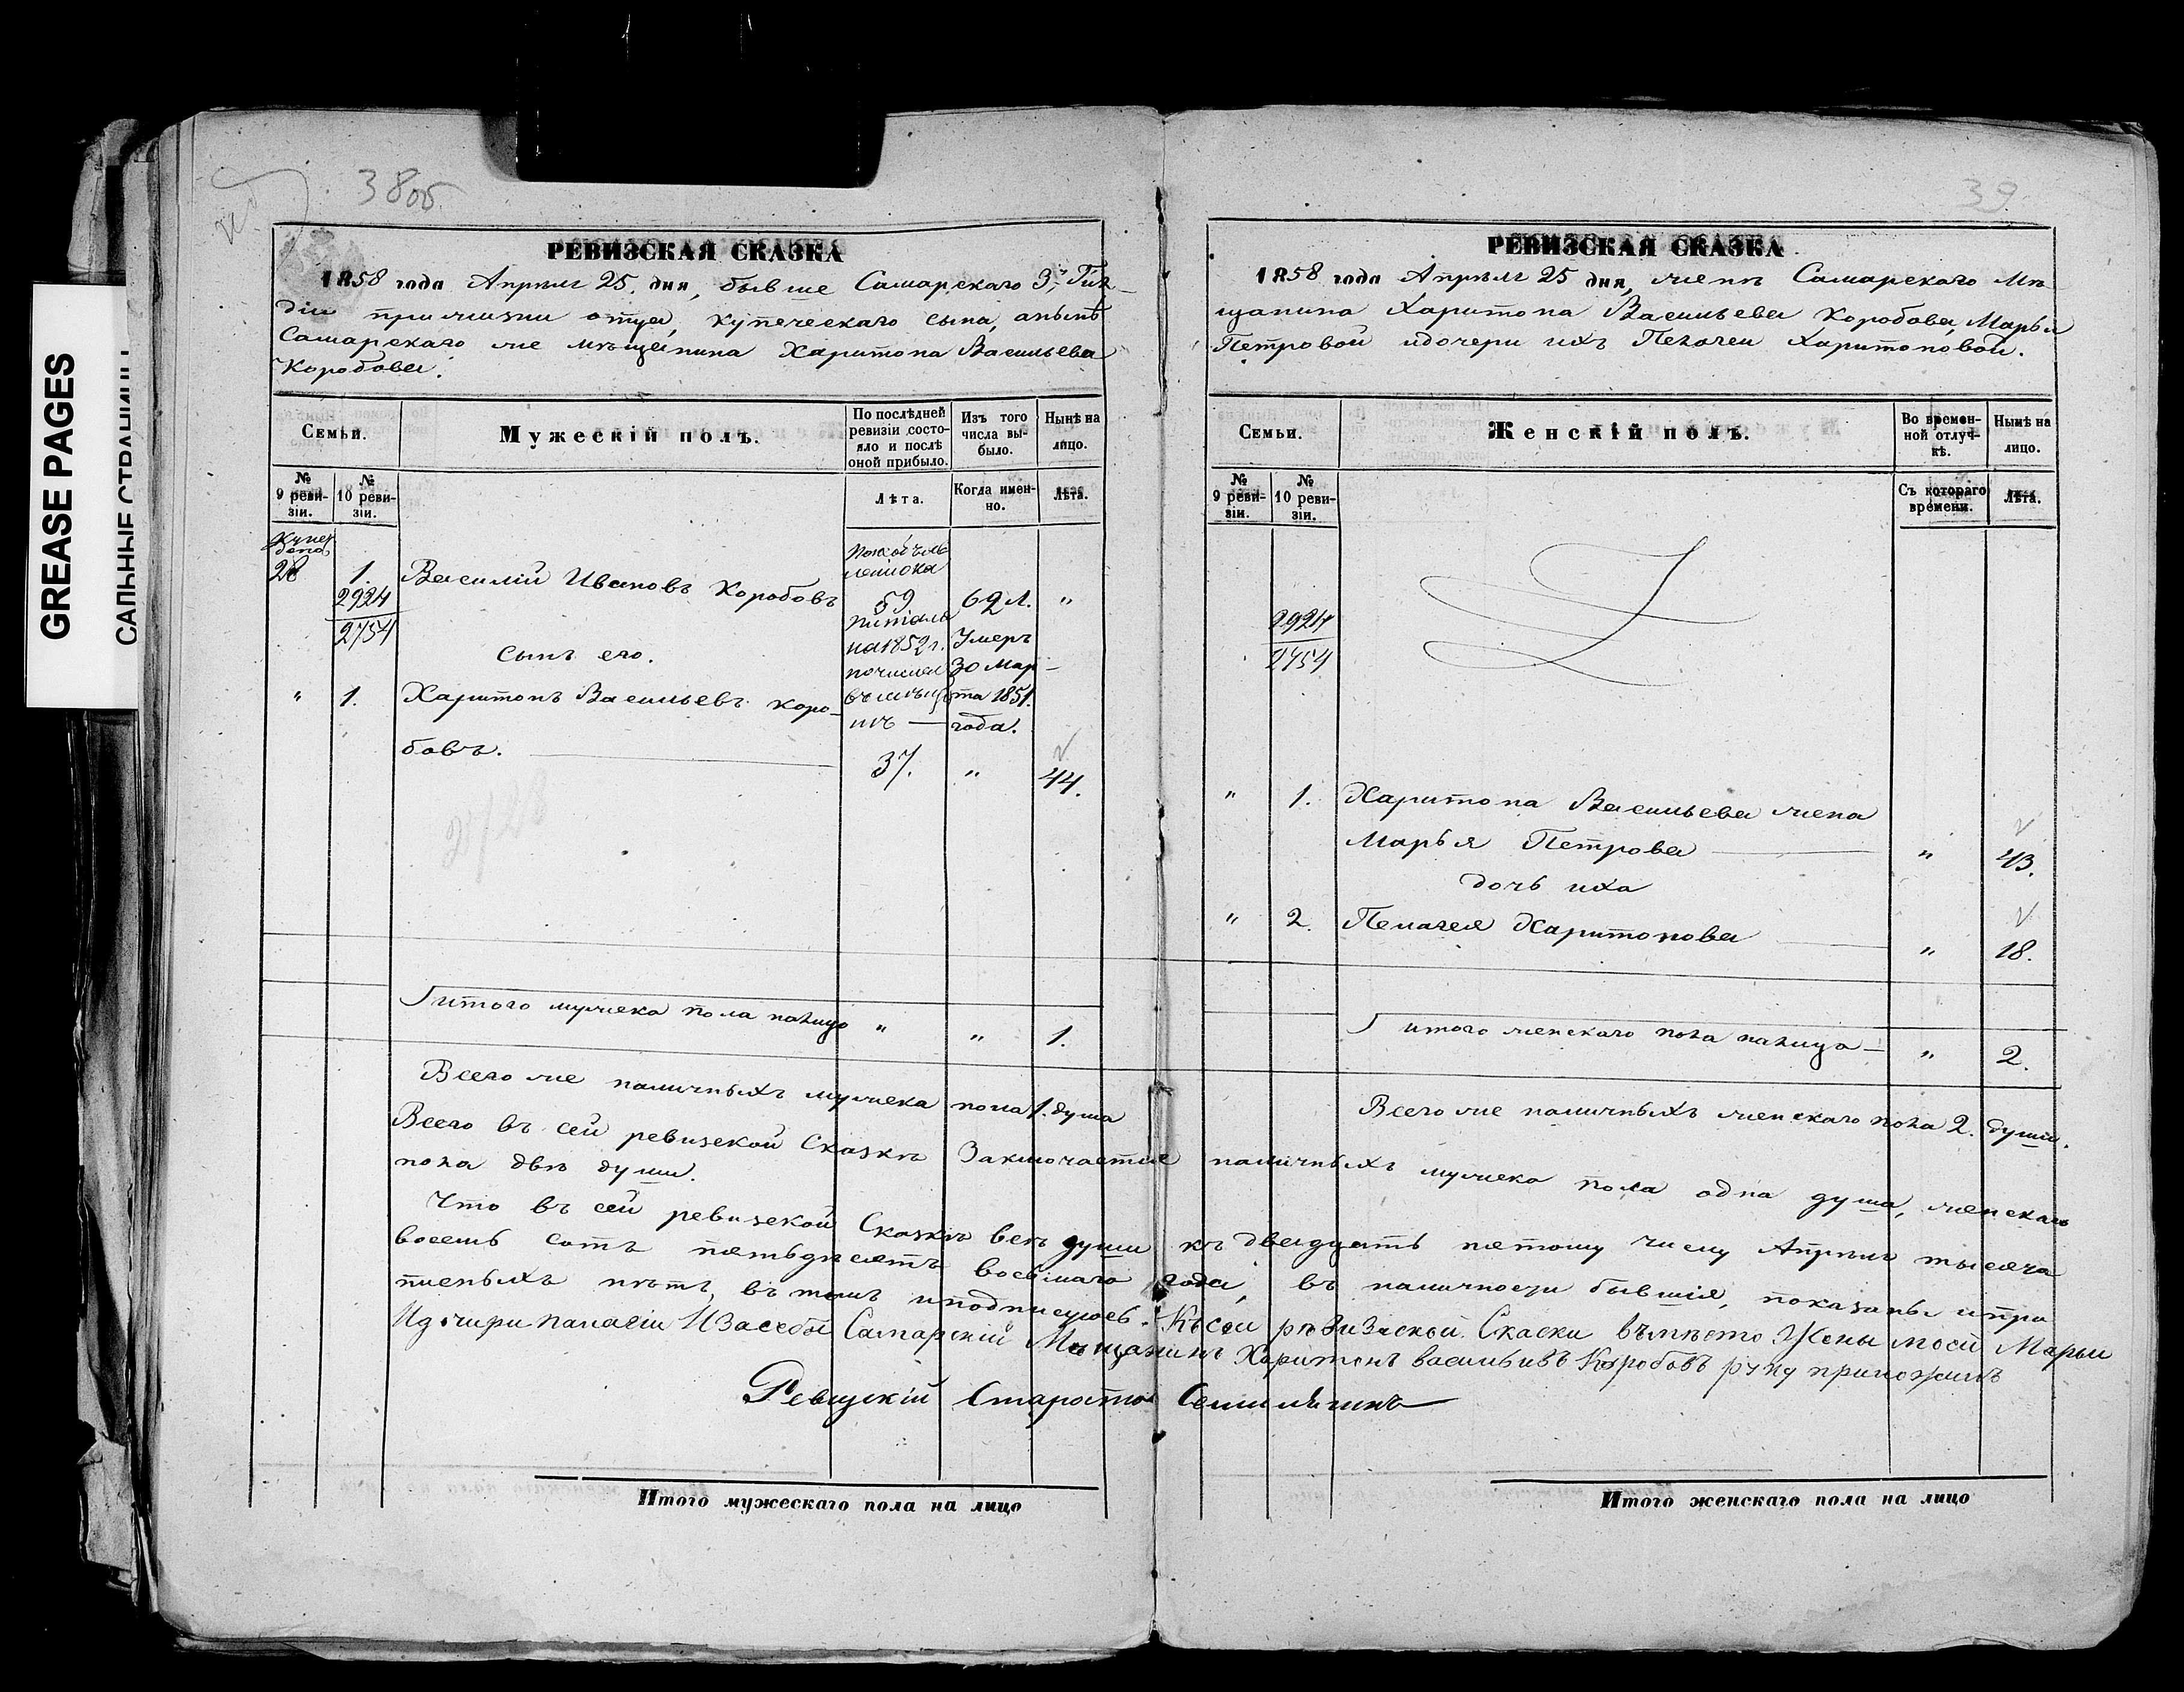 GREASE PAGES
САЛЬНЫЕ СТРАНИЦЫ
38об.
РЕВИЗСКАЯ СКАЗКА
1858 года Апрѣля 25. дня, бывше Самарскаго 3й Гил-
діи прижизни отца, купеческаго сына, анынѣ
Самарскаго же мѣщанина Харитона Васильева
Коробова.
Семьи.
Мужескій полъ.
По послѣдней ревизіи состояло и послѣ оной прибыло.
Изъ того числа выбыло.
Нынѣ на лицо.
№ 9 ревизіи.
№ 10 ревизіи.
Лѣта.
Когда именно.
Лѣта.
28
1. Василій Ивановъ Коробовъ
59
62 л. "
2924
2754
на 1852 г.
Умеръ
30 Мар-
та 1851.
года.
сынъ его.
" 1. Харитонъ Васильевъ Коро-
бовъ.
37. " 44.
Итого мужска пола налицо " " 1.
Всего же наличныхъ мужска пола 1. душа
39
РЕВИЗСКАЯ СКАЗКА
1858 года Апрѣля 25 дня, женѣ Самарскаго Мѣ
щанина Харитона Васильева Коробова, Марьи
Петровой идочери ихъ Пелагеи Харитоновой.
Семьи.
Женскій полъ.
Во временной отлучкѣ.
Нынѣ на лицо.
№ 9 ревизіи.
№ 10 ревизіи.
Съ котораго времени.
Лѣта.
2924
2754
" 1. Харитона Васильева жена
Марья Петрова " 43.
дочь ихъ
" 2. Пелагея Харитонова " 18.
Итого женскаго пола налицо " 2.
Всего же наличныхъ женскаго пола 2. души.
Всего въ сей ревизской Сказкѣ Заключается наличныхъ мужска пола одна душа, женскаго
пола двѣ души.
Что въ сей ревизской Сказкѣ всѣ души къ двадцать пятому числу Апрѣля тысяча
восемь сотъ пятьдесятъ восьмаго года, въ наличности бывшія, показаны ипро
пиеныхъ нѣтъ, въ томъ иподписуюсь. Късей ревизской Скаски вместо Жены моей Марьи
Идочири палагіи Изасебя Самарскій Мещанинъ Харитонъ васильивъ Коробовъ руку приложилъ
Ревизскій Староста
Итого мужескаго пола на лицо
Итого женскаго пола на лицо